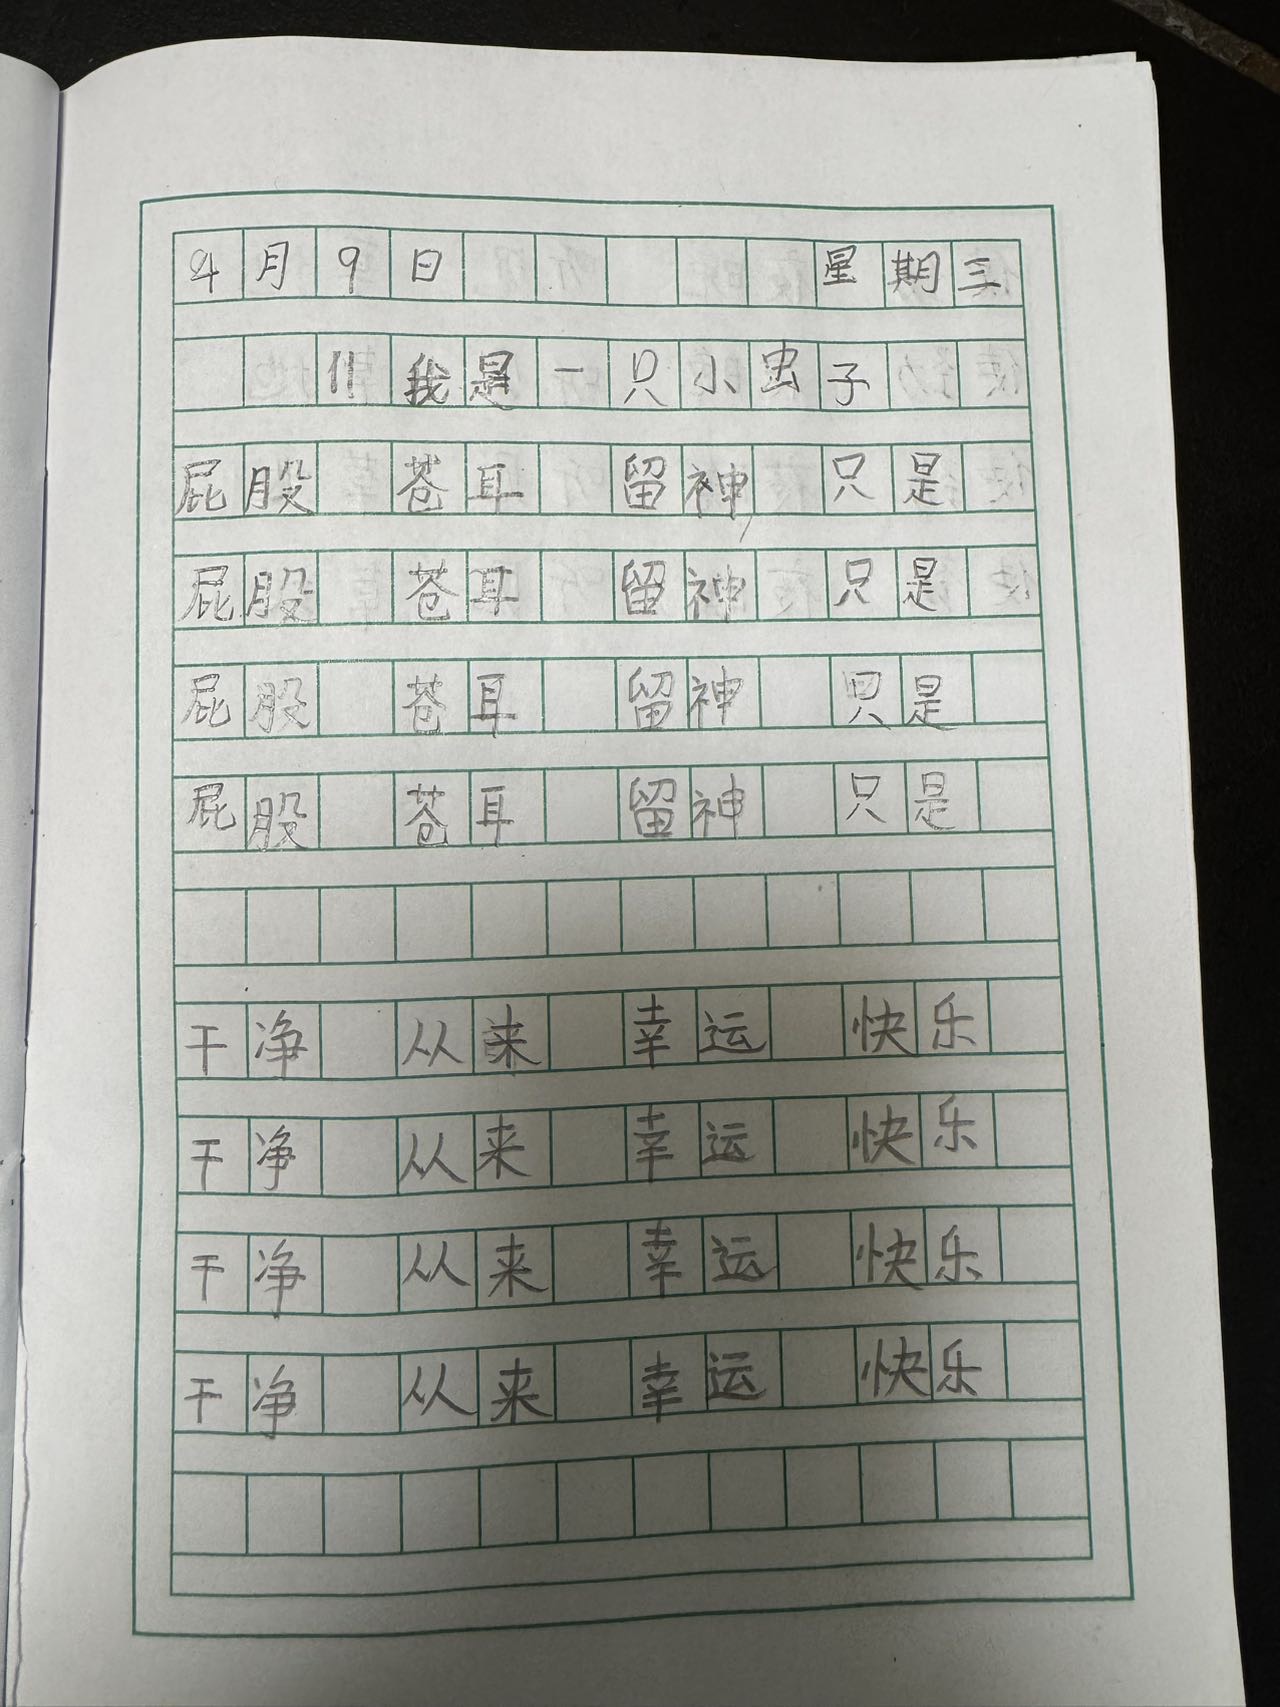 4月9日 星期三
11 我是一只小虫子
屁股 苍耳 留神 只是
屁股 苍耳 留神 只是
屁股 苍耳 留神 只是
屁股 苍耳 留神 只是
干净 从来 幸运 快乐
干净 从来 幸运 快乐
干净 从来 幸运 快乐
干净 从来 幸运 快乐